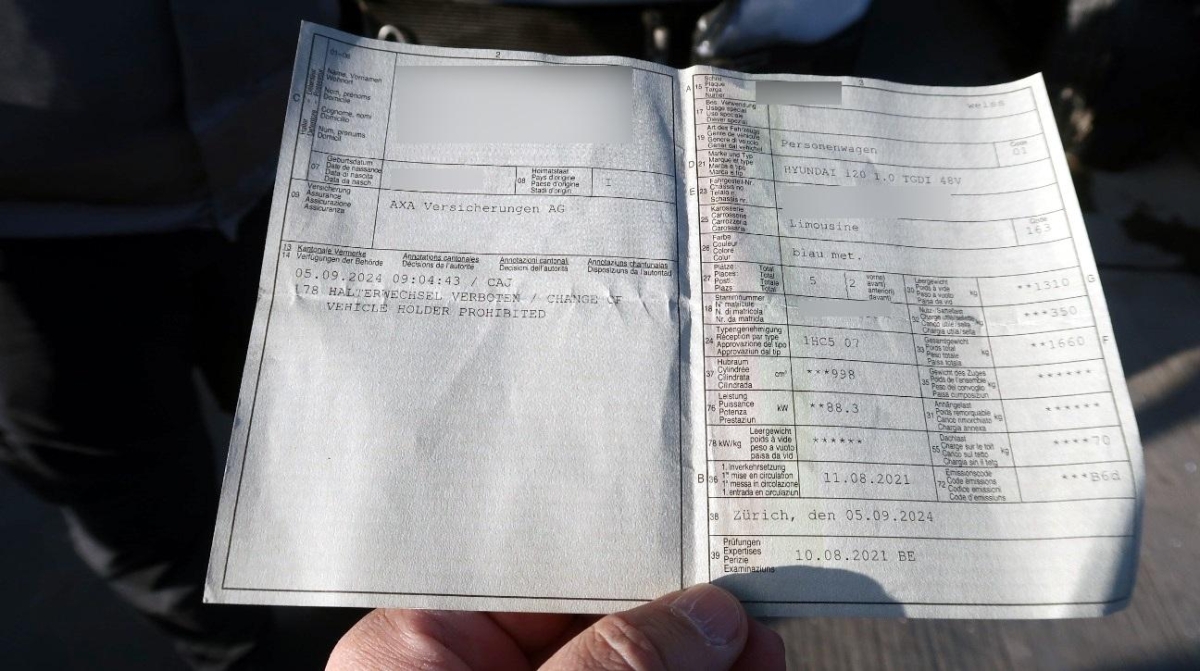 2
C
Name, Vornamen
Wohnort
Nom, prénoms
Domicile
Cognome, nomi
Domicilio
Num, prenums
Domicil
07 Geburtsdatum
Date de naissance
Data di nascita
Data da nasch.
08 Heimatstaat
Pays d'origine
Paese d'origine
Stadi d'origin
I
09 Versicherung
Assurance
Assicurazione
Assicuranza
AXA Versicherungen AG
13 Kantonale Vermerke Annotations cantonales Annotazioni cantonali Annotaziuns chantunalas
14 Verfügungen der Behörde Décisions de l'autorité Decisioni dell'autorità Disposiziuns da l'autoritad
05.09.2024 09:04:43 / CAJ
178 HALTERWECHSEL VERBOTEN / CHANGE OF
VEHICLE HOLDER PROHIBITED
3
A 15 Schild
Plaque
Targa
Numer
weiss
17 Bes. Verwendung
Usage spécial
Uso speciale
Diever spezial
19 Art des Fahrzeugs
Genre de véhicule
Genere di veicolo
Gener dal vehichel
Personenwagen
Code
01
D 21 Marke und Typ
Marque et type
Marca e tipo
Marca e tip
HYUNDAI i20 1.0 TGDI 48V
E 23 Fahrgestell-Nr.
Châssis no
Telaio n.
Schassis nr.
25 Karosserie
Carrosserie
Carrozzeria
Carossaria
Limousine
Code
163
26 Farbe
Couleur
Colore
Colur
blau met.
27 Plätze Total
Places: Total
Posti: Totale
Plazs: Total
5
2
vorne)
avant)
anteriori)
davant)
30 Leergewicht
Poids à vide
Peso a vuoto
Paisa da vid
kg
**1310
G
18 Stammnummer
N° matricule
N. di matricola
Nr. da matricla
32 Nutz-/Sattellast
Charge utile/sellette
Carico utile/sella
Chargia utila/sella
kg
***350
24 Typengenehmigung
Réception par type
Approvazione del tipo
Approvaziun dal tip
1HC5 07
33 Gesamtgewicht
Poids total
Peso totale
Paisa totala
kg
**1660
F
37 Hubraum
Cylindrée
Cilindrata
Cilindrada
cm³
***998
35 Gewicht des Zuges
Poids de l'ensemble
Peso del convoglio
Paisa cumposiziun
kg
******
76 Leistung
Puissance
Potenza
Prestaziun
kW
**88.3
31 Anhängelast
Poids remorquable
Carico rimorchiato
Chargia annexa
kg
******
78 kW/kg
Leergewicht
poids à vide
peso a vuoto
paisa da vid
******
55 Dachlast
Charge sur le toit
Carico sul tetto
Chargia sin il tetg
kg
****70
B 36 1. Inverkehrsetzung
1re mise en circulation
1a messa in circolazione
1. entrada en circulaziun
11.08.2021
72 Emissionscode
Code émissions
Codice emissioni
Code d'emissiuns
***B6d
38 Zürich, den 05.09.2024
39 Prüfungen
Expertises
Perizie
Examinaziuns
10.08.2021 BE